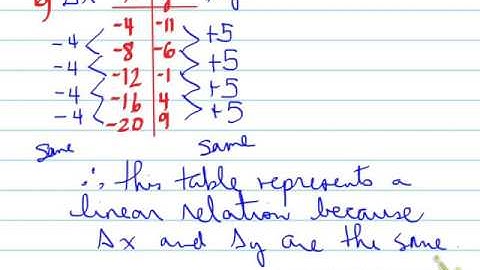 Δx
-4 -11
-4 +5
-8 -6
-4 +5
-12 -1
-4 +5
-16 4
-4 +5
-20 9
same same
∴ this table represents a
linear relation because
Δx and Δy are the same.